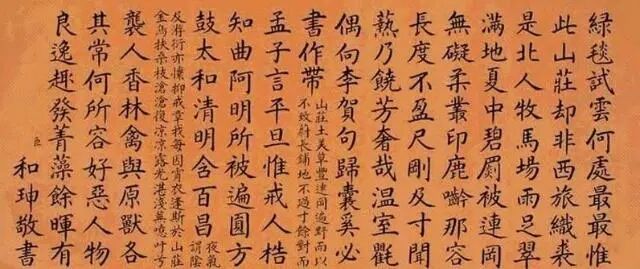 綠毯試雲何處最最惟
此山莊却非西旅織裘
是北人牧馬場雨足翠
滿地夏中碧罽被連岡
無礙柔叢印鹿那容
長度不盈尺剛及寸聞
爇乃饒芳奢哉溫室氍
偶句李賀句歸囊奚必
書作帶
山莊土美草豐連岡遍野而以
不致蔚長鋪地不過寸餘對而
孟子言平旦惟戒人梏
知曲阿明所被遍圓方
鼓太和清明含百昌
夜氣
謂陰
及海衍亦懷抑戒章我每因宵衣逢斯於山莊
金烏扶桑枝滄滄復涼涼露光湛淺蕪噫吁兮
襲人香林禽與原獸各
其常何所容好惡人物
良逸趣發菁藻餘暉有
臣和珅敬書